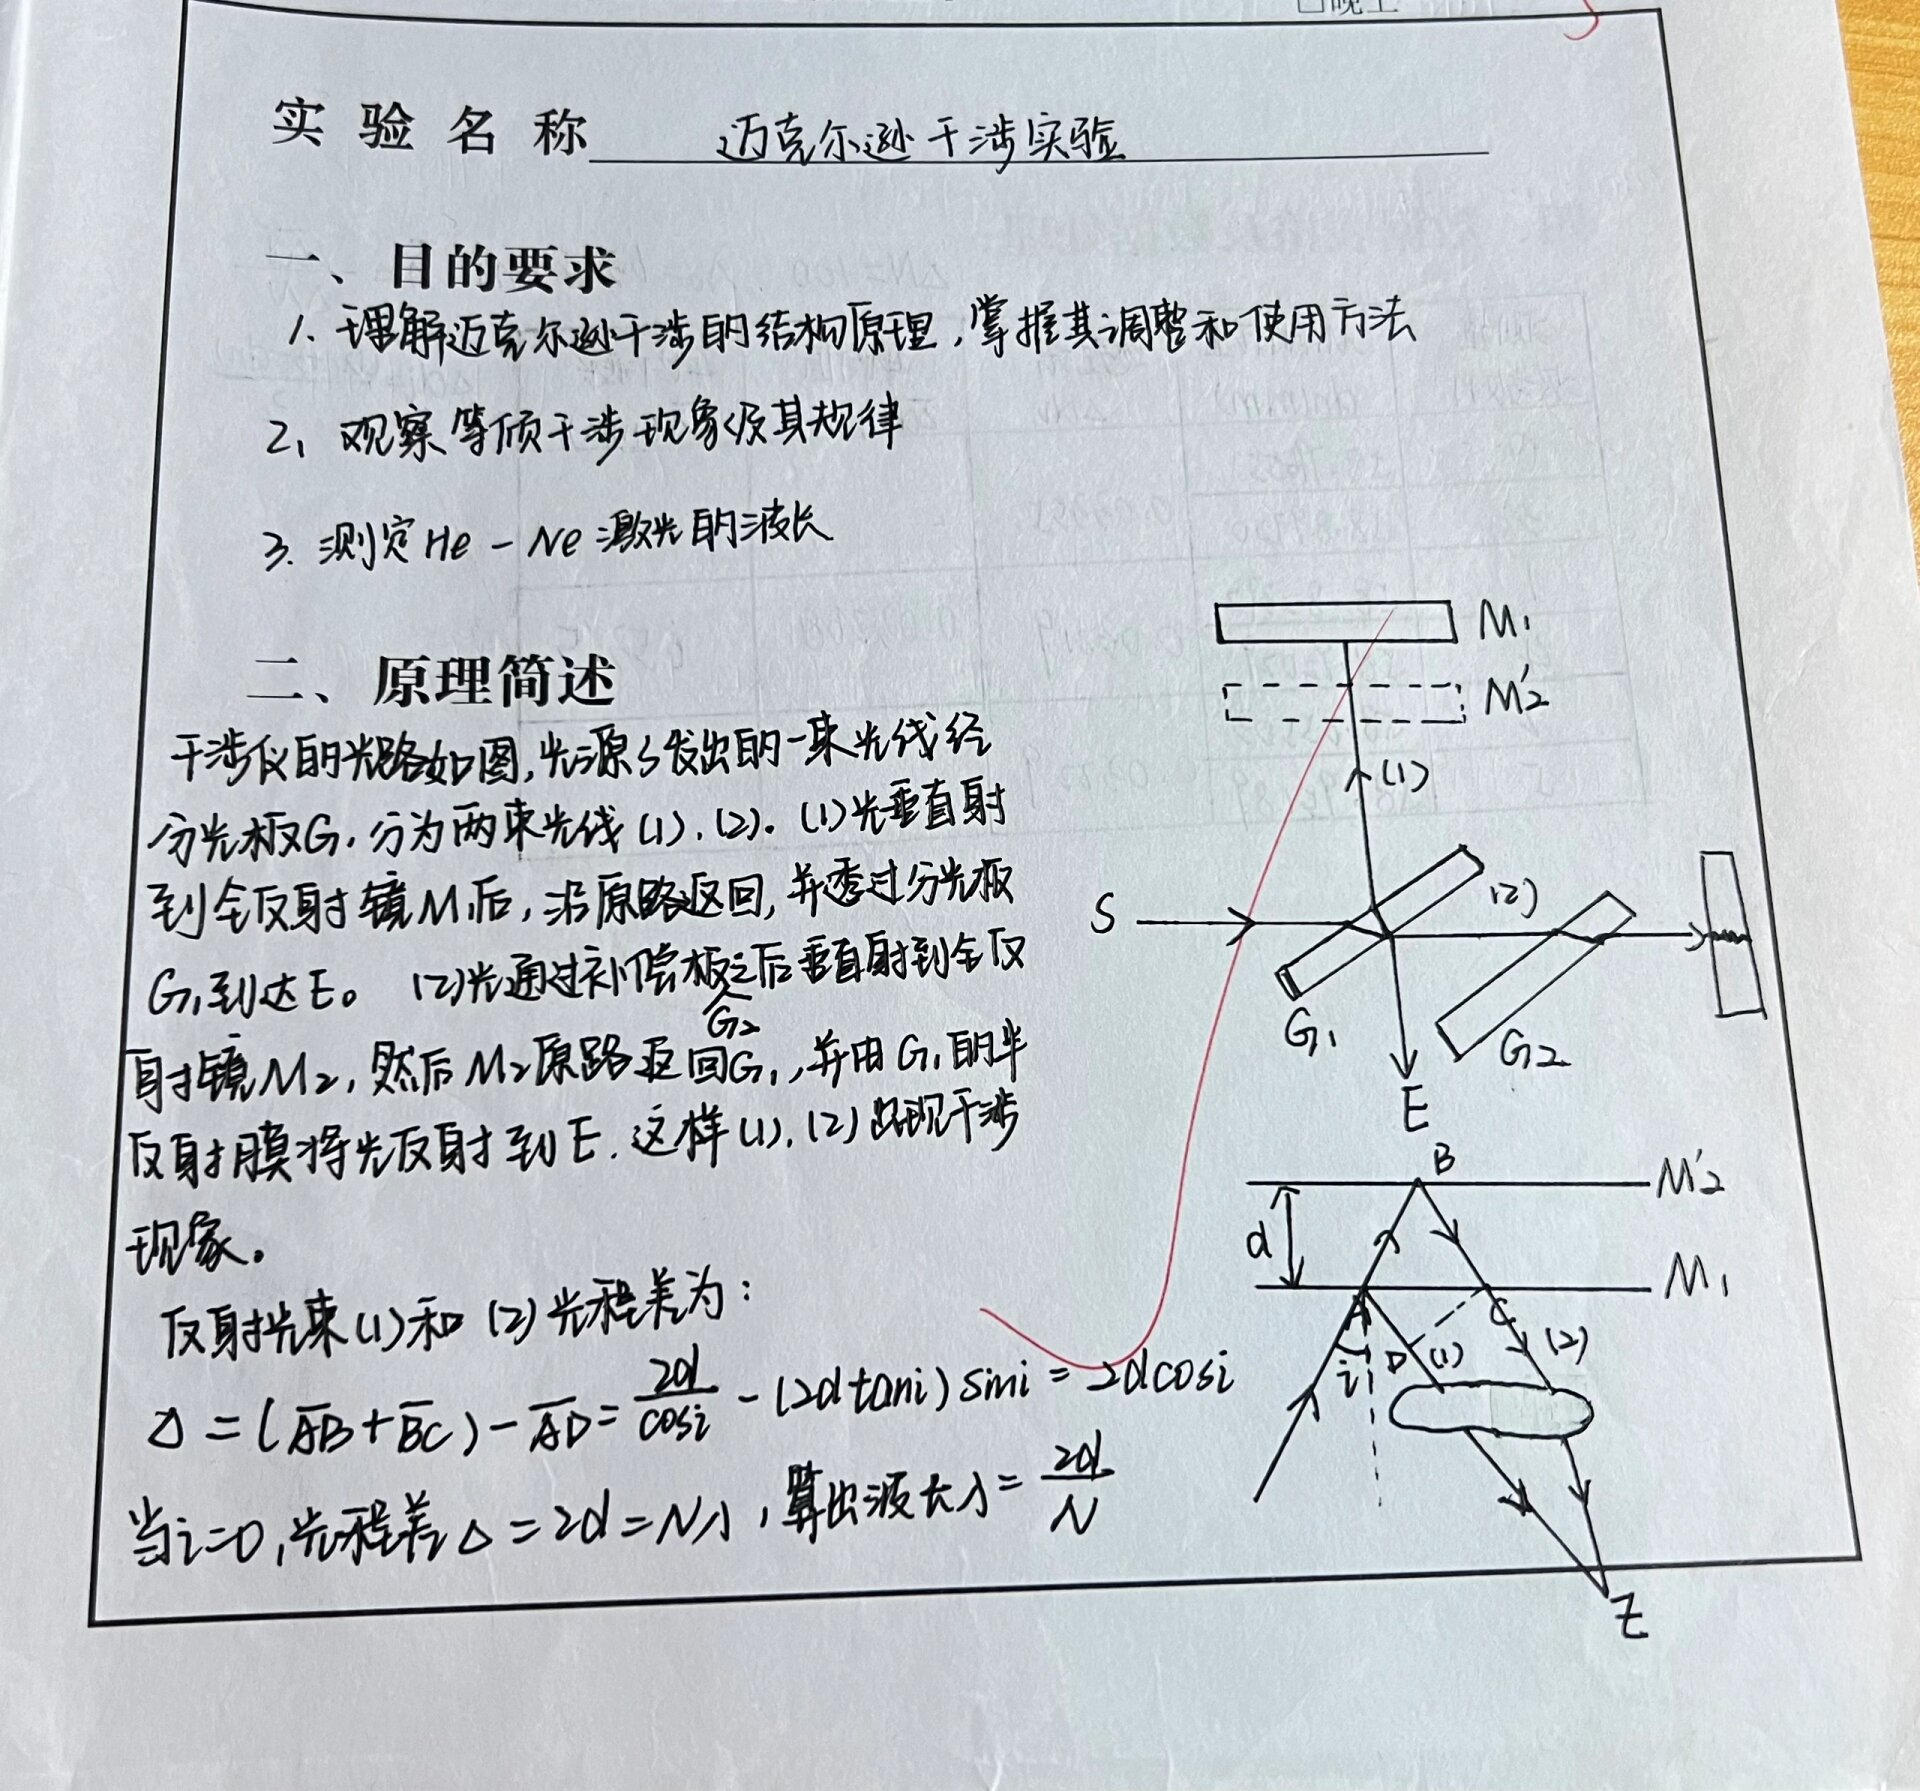 □晚上
实验名称 迈克尔逊干涉实验
一、目的要求
1. 理解迈克尔逊干涉的结构原理,掌握其调整和使用方法
2、观察等倾干涉现象及其规律
3. 测定He-Ne激光的波长
二、原理简述
干涉仪的光路如图,光源S发出的一束光线经
分光板G,分为两束光线(1),(2)。(1)光垂直射
到全反射镜M₁后,沿原路返回,并透过分光板
G₁到达E。(2)光通过补偿板G₂之后垂直射到全反
射镜M₂,然后M₂原路返回G₁,并由G₁的半
反射膜将光反射到E.这样(1),(2)出现干涉
现象。
反射光束(1)和(2)光程差为:
Δ=(AB+BC)-AD=2d/cosi-(2dtani)sini=2dcosi
当i=0,光程差Δ=2d=Nλ,算出波长λ=2d/N
M₁
M₂′
(1)
S
(2)
G₁
G₂
E
B
M₂′
d
M₁
A
C
i
D
(1)
(2)
Z